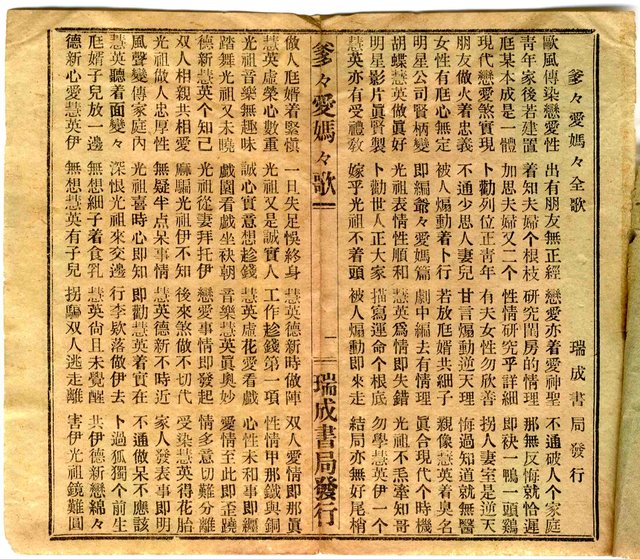 爹々愛媽々全歌　瑞成書局發行
歐風傳染戀愛性　出有朋友無正經　戀愛亦着愛神聖　不通破人个家庭
靑年家後若建置　着知夫婦个根枝　研究閨房的情理　那無反悔就恰遲
尫某本成是一體　加思夫婦又二个　性情研究乎詳細　即袂一鴨一頭鷄
現代戀愛煞實現　卜勸列位正靑年　有夫女性勿欣善　拐人妻室是逆天
朋友做火着忠義　不通少思人妻兒　甘言煽動逆天理　悔過知道就無醫
女性有尫心無定　被人煽動着卜行　若放尫婿共細子　親像慧英着臭名
明星公司賢柄變　即編爺々愛媽篇　劇中編去有情理　眞合現代个時機
胡蝶慧英做眞好　光祖表情性順和　慧英為情即失錯　光祖不乇牽知哥
明星影片眞賢製　卜勸世人正大家　描寫運命个根底　勿學慧英伊一个
慧英亦有受禮敎　嫁乎光祖不着頭　被人煽動即來走　結局亦無好尾梢
爹々愛媽々歌　一　瑞成書局發行
做人尫婿着緊愼　一旦失足悞終身　慧英德新時做陣　双人愛情即那眞
慧英虛榮心數重　光祖又是誠實人　工作趁錢第一項　性情甲那鐵與銅
光祖音樂無趣味　誠心實意想趁錢　慧英虛花愛看戲　心性未和事即纏
踏舞光祖又未曉　戲園看戲坐袂朝　音樂慧英眞奧妙　愛情至此即歪蹺
德新慧英个知己　光祖從妻拜托伊　戀愛事情即發起　情多意切難分離
双人相親共相愛　麻騙光祖伊不知　後來煞做不切代　受染慧英得花胎
光祖做人忠厚性　無疑半点呆事情　慧英德新不時近　家人發表事即明
風聲變傳家庭內　光祖喜時心即知　即勸慧英着實在　不通做呆不應該
慧英聽着面變々　深恨光祖來交邊　行李欵落做伊去　卜過狐獨个前生
尫婿子兒放一邊　無想細子着食乳　慧英尙且未覺醒　共伊德新戀綿々
德新心愛慧英伊　無想慧英有子兒　拐騙双人逃走離　害伊光祖鏡難圓